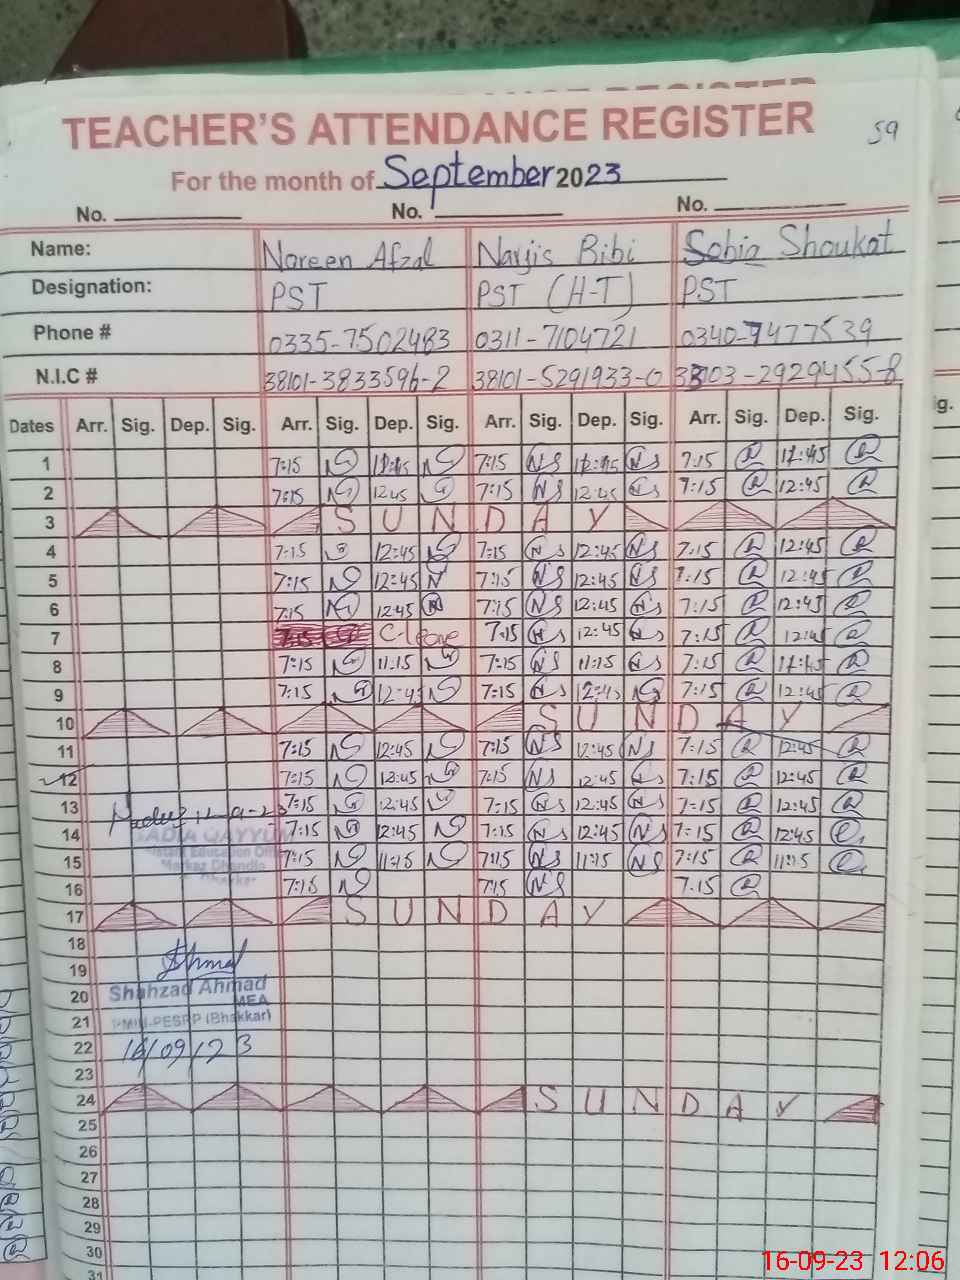 TEACHER'S ATTENDANCE REGISTER 59
For the month of September 2023
No. No. No.
Name: Noreen Afzal Narjis Bibi Sobia Shoukat
Designation: PST PST (H-T) PST
Phone # 0335-7502483 0311-7104721 0340-7477539
N.I.C # 38101-3833596-2 38101-5291933-0 38103-2929455-8
Dates Arr. Sig. Dep. Sig. Arr. Sig. Dep. Sig. Arr. Sig. Dep. Sig. Arr. Sig. Dep. Sig.
1 7:15 7:15 NS NS 7:15
2 7:15 12:45 7:15 NS 12:45 NS 7:15 12:45
3 SUNDAY
4 7:15 12:45 7:15 NS 12:45 NS 7:15 12:45
5 7:15 12:45 7:15 NS 12:45 NS 7:15 12:45
6 7:15 12:45 7:15 NS 12:45 NS 7:15 12:45
7 C-leave 7:15 NS 12:45 NS 7:15 12:45
8 7:15 11:15 7:15 NS 11:15 NS 7:15
9 7:15 12:45 7:15 NS 12:45 NS 7:15 12:45
10 SUNDAY
11 7:15 12:45 7:15 NS 12:45 NS 7:15 12:45
12 7:15 12:45 7:15 NS 12:45 NS 7:15 12:45
13 7:15 12:45 7:15 NS 12:45 NS 7:15 12:45
14 SADIA QAYYUM 7:15 12:45 7:15 NS 12:45 NS 7:15 12:45
Assistant Education Officer
15 7:15 11:15 7:15 NS 11:15 NS 7:15 11:15
Markaz Dhandla
Bhakkar
16 7:15 7:15 NS 7:15
17 SUNDAY
18
19
20 Shahzad Ahmad
MEA
21 PMIU-PESRP (Bhakkar)
22 16/09/23
23
24 SUNDAY
25
26
27
28
29
30
31
16-09-23 12:06